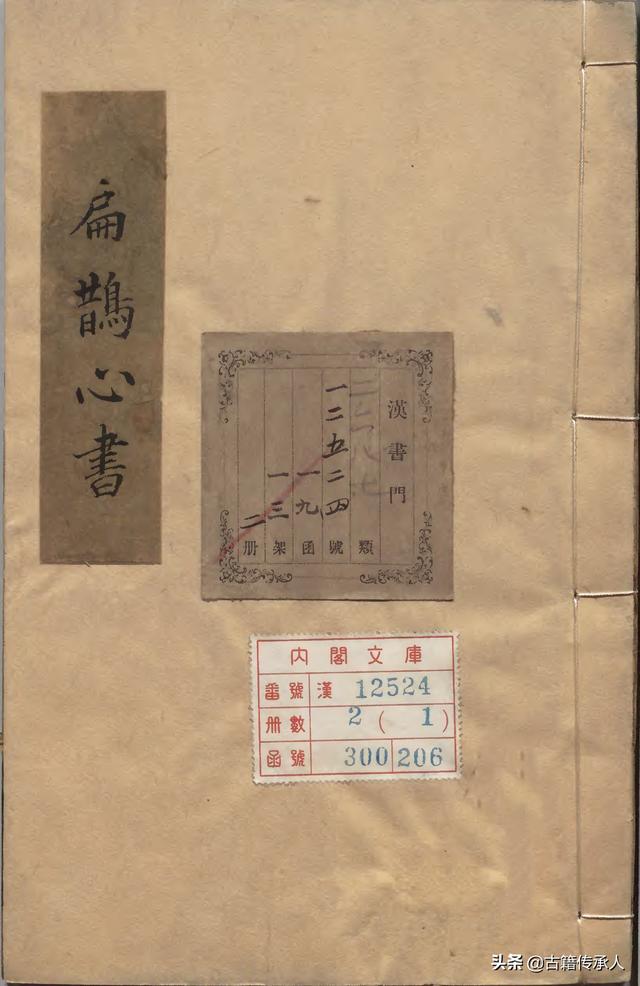 扁鵲心書
漢書門
類
一二五二四號
一九函
一三架
二册
內閣文庫
番號 漢 12524
册數 2 ( 1 )
函號 300 206
头条 @古籍传承人